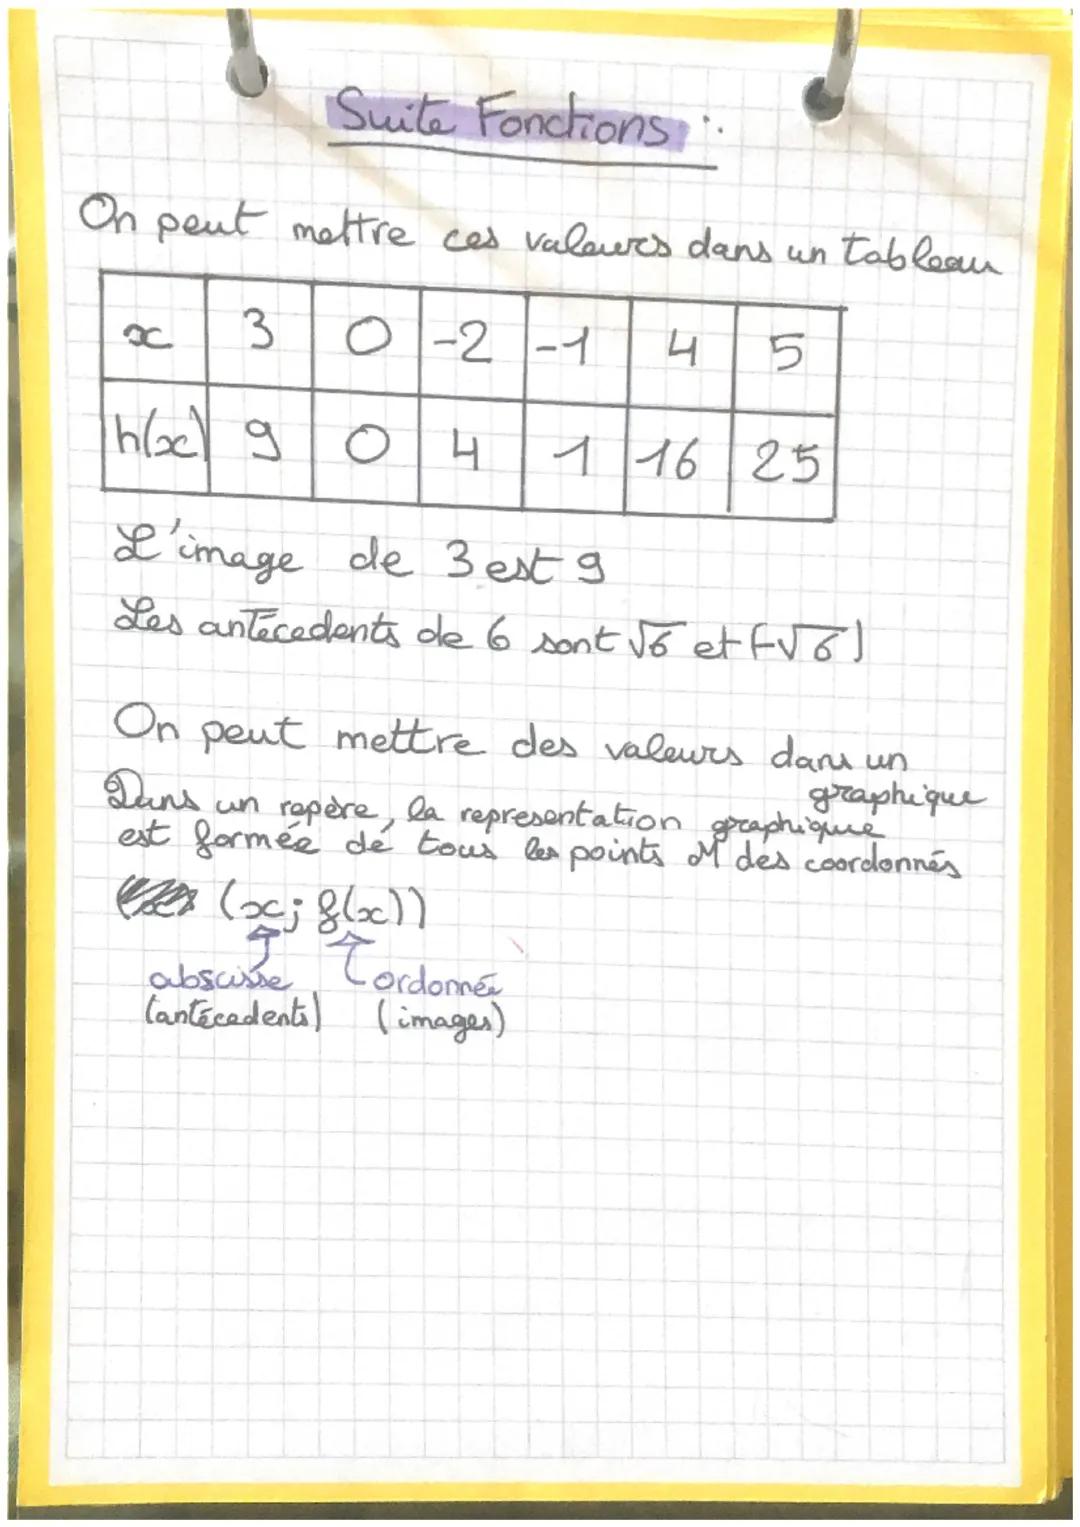 Suite Fonctions :
On peut mettre ces valeurs dans un tableau
x 3 0 -2 -1 4 5
h(x) 9 0 4 1 16 25
L'image de 3 est 9
Les antécedents de 6 sont √6 et (-√6)
On peut mettre des valeurs dans un
graphique
Dans un repère, la representation graphique
est formée dé tous les points M des coordonnés
(x; f(x))
abscisse ordonnée
(antécedents) (images)